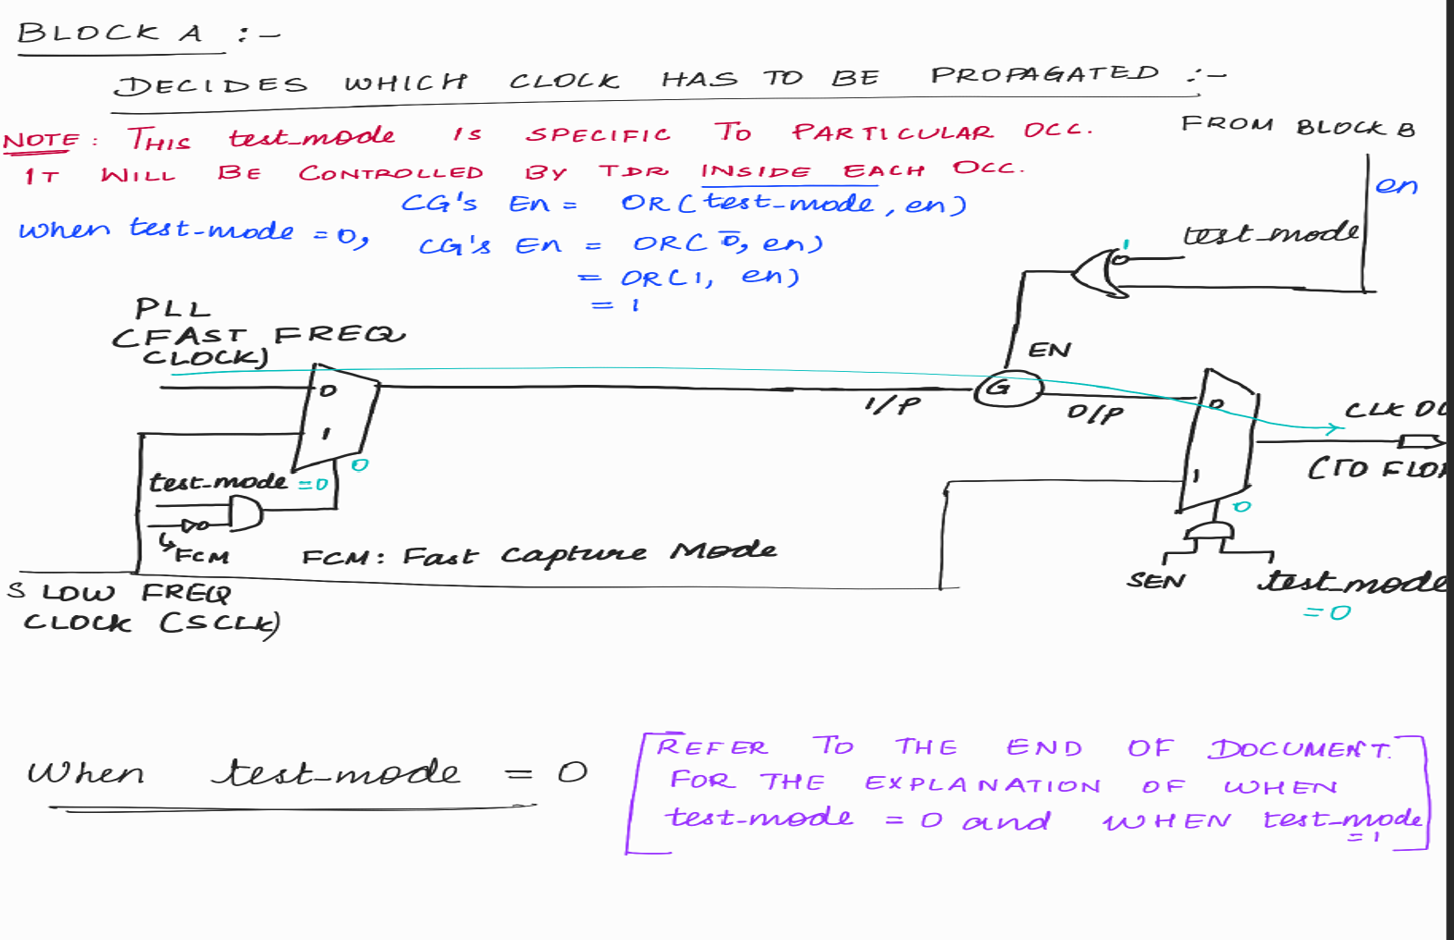 BLOCK A :-
DECIDES WHICH CLOCK HAS TO BE PROPAGATED :-
NOTE: THIS test_mode IS SPECIFIC TO PARTICULAR OCC.
IT WILL BE CONTROLLED BY TDR INSIDE EACH OCC.
FROM BLOCK B
en
CG's En = OR(test-mode, en)
when test-mode = 0, CG's En = OR(0, en)
= OR(1, en)
= 1
1
test_mode
PLL
(FAST FREQ
CLOCK)
EN
0
G
I/P
O/P
0
CLK
1
(TO
0
test-mode =0
1
0
FCM
FCM: Fast Capture Mode
SEN
test_mode
=0
SLOW FREQ
CLOCK (SCLK)
When test-mode = 0
[REFER TO THE END OF DOCUMENT.
FOR THE EXPLANATION OF WHEN
test-mode = 0 and WHEN test_mode
=1]